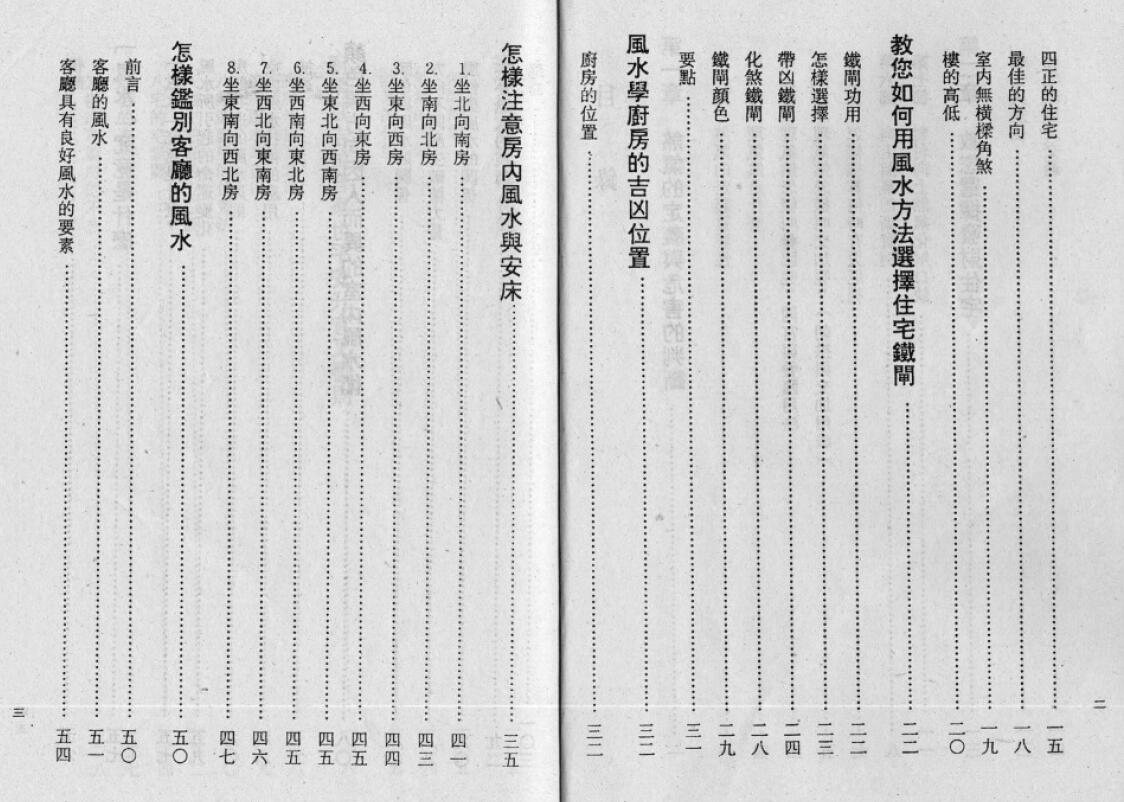 四正的住宅……一五
最佳的方向……一八
室內無橫樑角煞……一九
樓的高低……二〇
教您如何用風水方法選擇住宅鐵閘……二二
鐵閘功用……二二
怎樣選擇……二三
帶凶鐵閘……二四
化煞鐵閘……二八
鐵閘顏色……二九
要點……三一
風水學廚房的吉凶位置……三二
廚房的位置……三二
二
怎樣注意房內風水與安床……三五
1.坐北向南房……四一
2.坐南向北房……四三
3.坐東向西房……四四
4.坐西向東房……四五
5.坐東北向西南房……四五
6.坐西南向東北房……四五
7.坐西北向東南房……四六
8.坐東南向西北房……四七
怎樣鑑別客廳的風水……五〇
前言……五〇
客廳的風水……五一
客廳具有良好風水的要素……五四
三